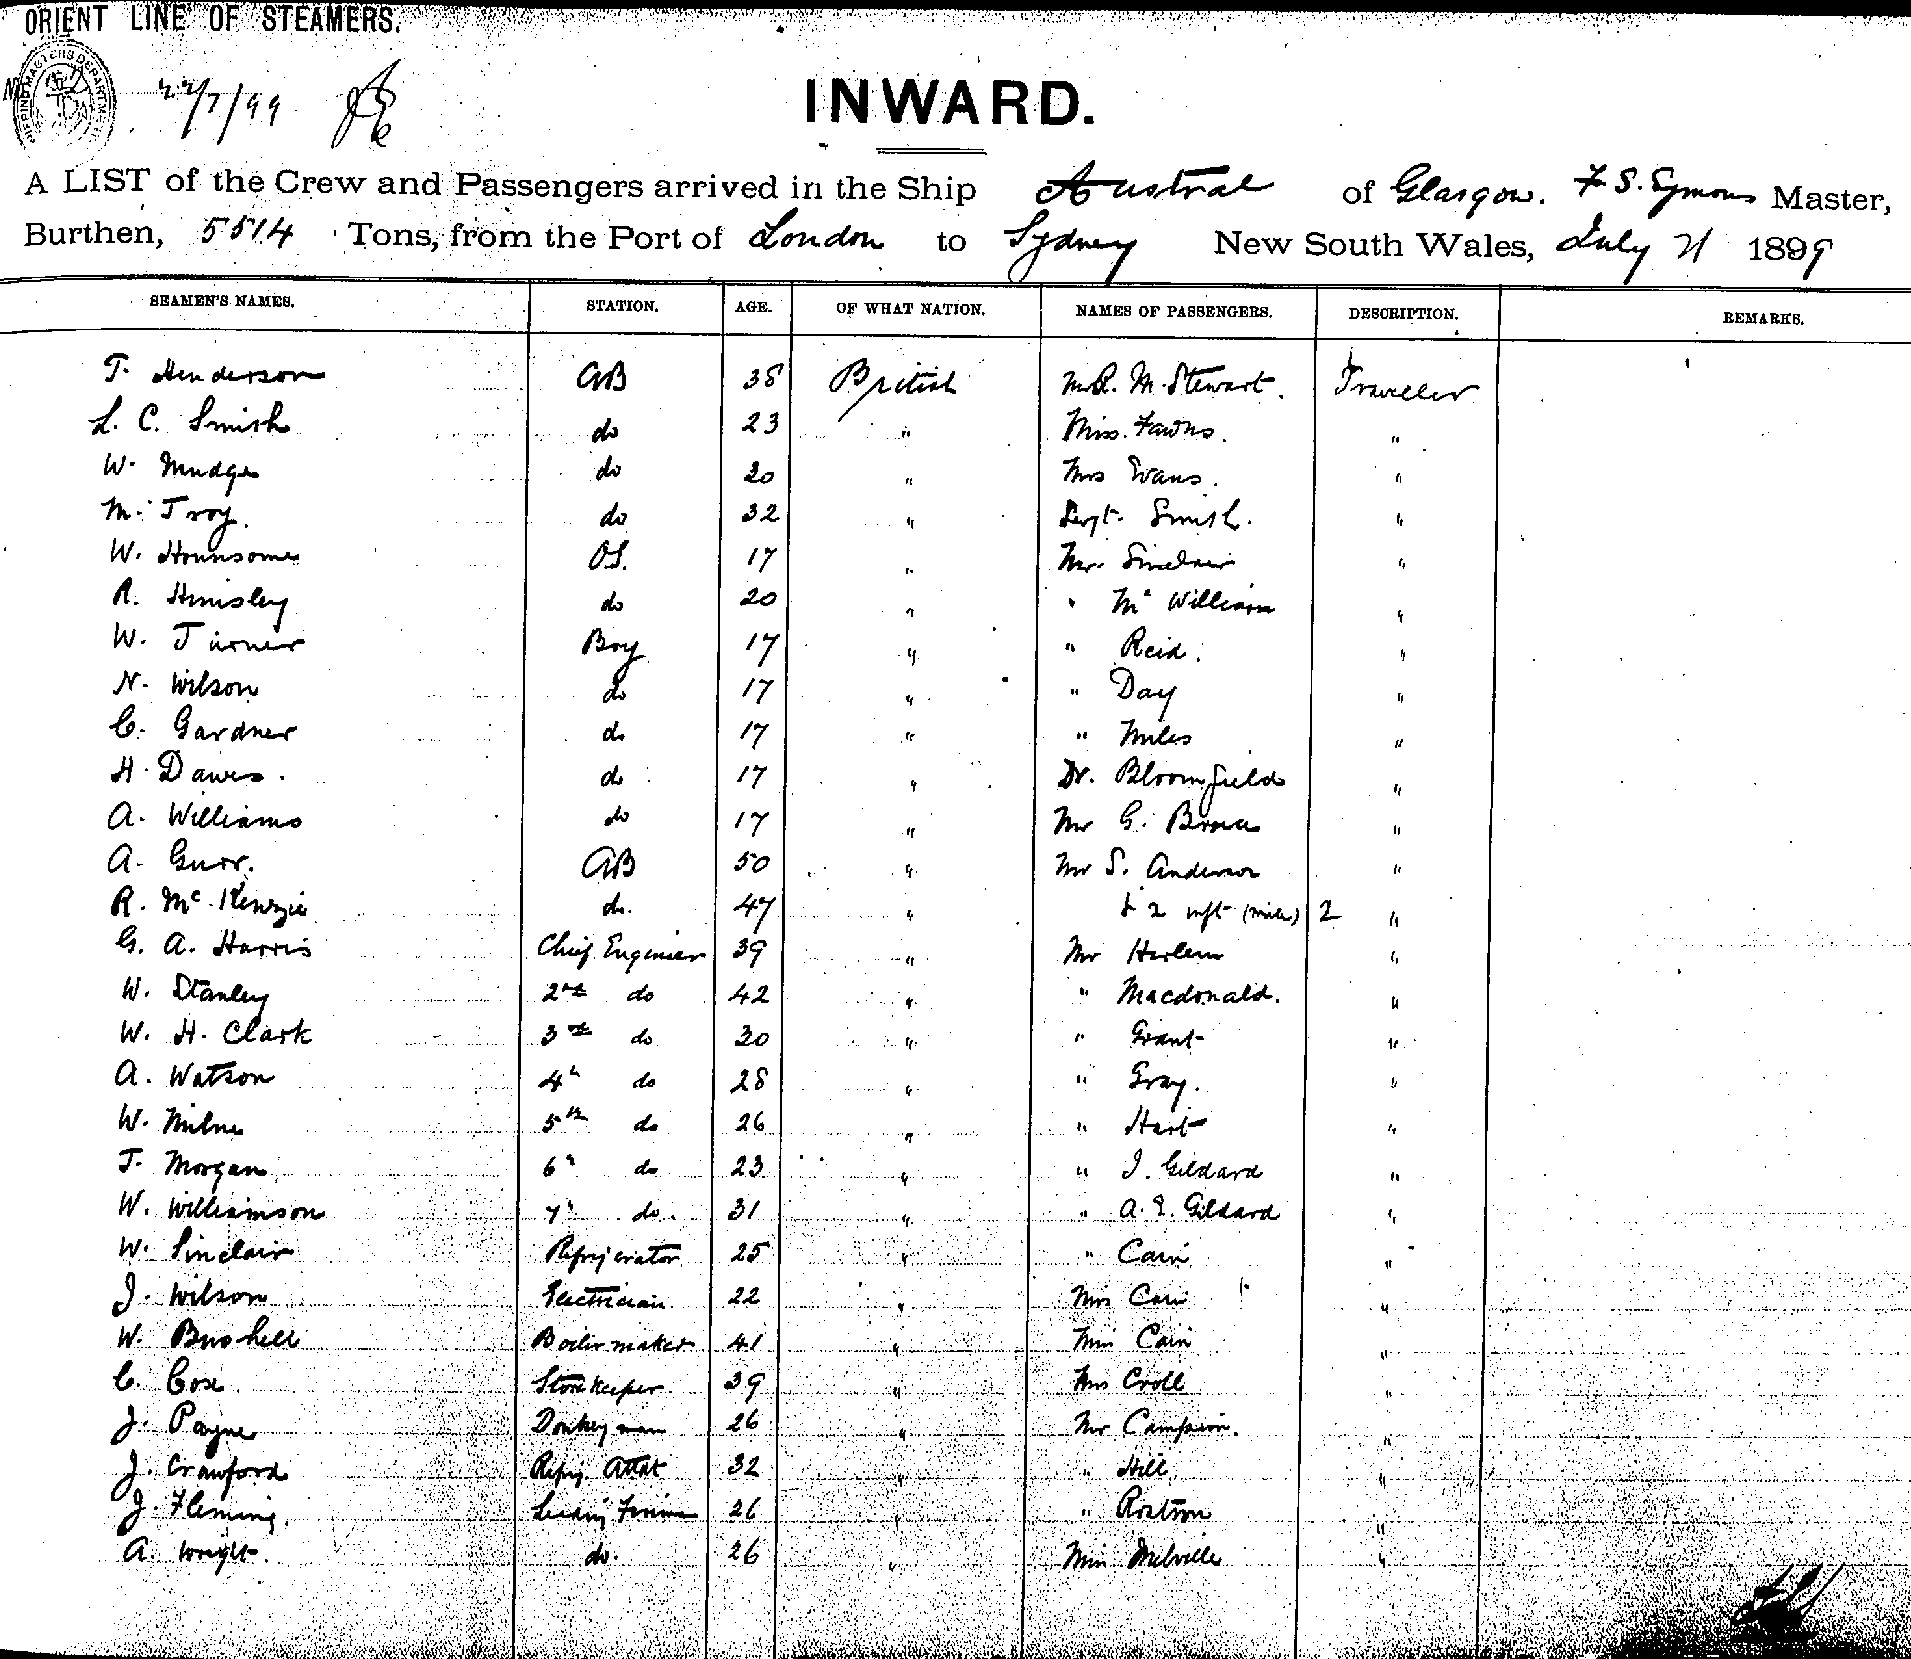 ORIENT LINE OF STEAMERS.
SHIPPING MASTERS DEPARTMENT
22/7/99
INWARD.
A LIST of the Crew and Passengers arrived in the Ship Austral of Glasgow. F. S. Symons Master,
Burthen, 5514 Tons, from the Port of London to Sydney New South Wales, July 21 1899
SEAMEN'S NAMES. STATION. AGE. OF WHAT NATION. NAMES OF PASSENGERS. DESCRIPTION. REMARKS.
T. Henderson AB 38 British M. Stewart. Traveller
L. C. Smith do 23 " Miss. Fawns. "
W. Mudge do 20 " Mrs Evans. "
M. Troy. do 32 " Sergt. Smith. "
W. Hounsome OS. 17 " Mr. Sinclair "
R. do 20 " " Mc William "
W. Turner Boy 17 " " Reid. "
N. Wilson do 17 " " Day "
C. Gardner do 17 " " Miles "
H. Dawes. do 17 " Dr. Bloomfield "
A. Williams do 17 " Mr G. "
A. Gurr. AB 50 " Mr S. Anderson "
R. McKenzie do. 47 " & 2 inft (miles) 2 "
G. A. Harris Chief Engineer 39 " Mr "
W. Stanley 2nd do 42 " " Macdonald. "
W. H. Clark 3rd do 30 " " Grant "
A. Watson 4th do 28 " " Gray. "
W. Milne 5th do 26 " " Hart "
T. Morgan 6th do 23 " " J. Gildard "
W. Williamson 7th do. 31 " " A. E. Gildard "
W. Sinclair Refrigerator 25 " " Cain "
J. Wilson Electrician 22 " Mrs Cain "
W. Bushell Boilermaker 41 " Miss Cain "
C. Cox Storekeeper 39 " Mrs Croll "
J. Payne Donkeyman 26 " Mr Campion. "
J. Crawford Refrig. Attdt 32 " " Hill "
J. Fleming. Leading Fireman 26 " " Rostron "
A. Wright. do. 26 " Miss Melville "